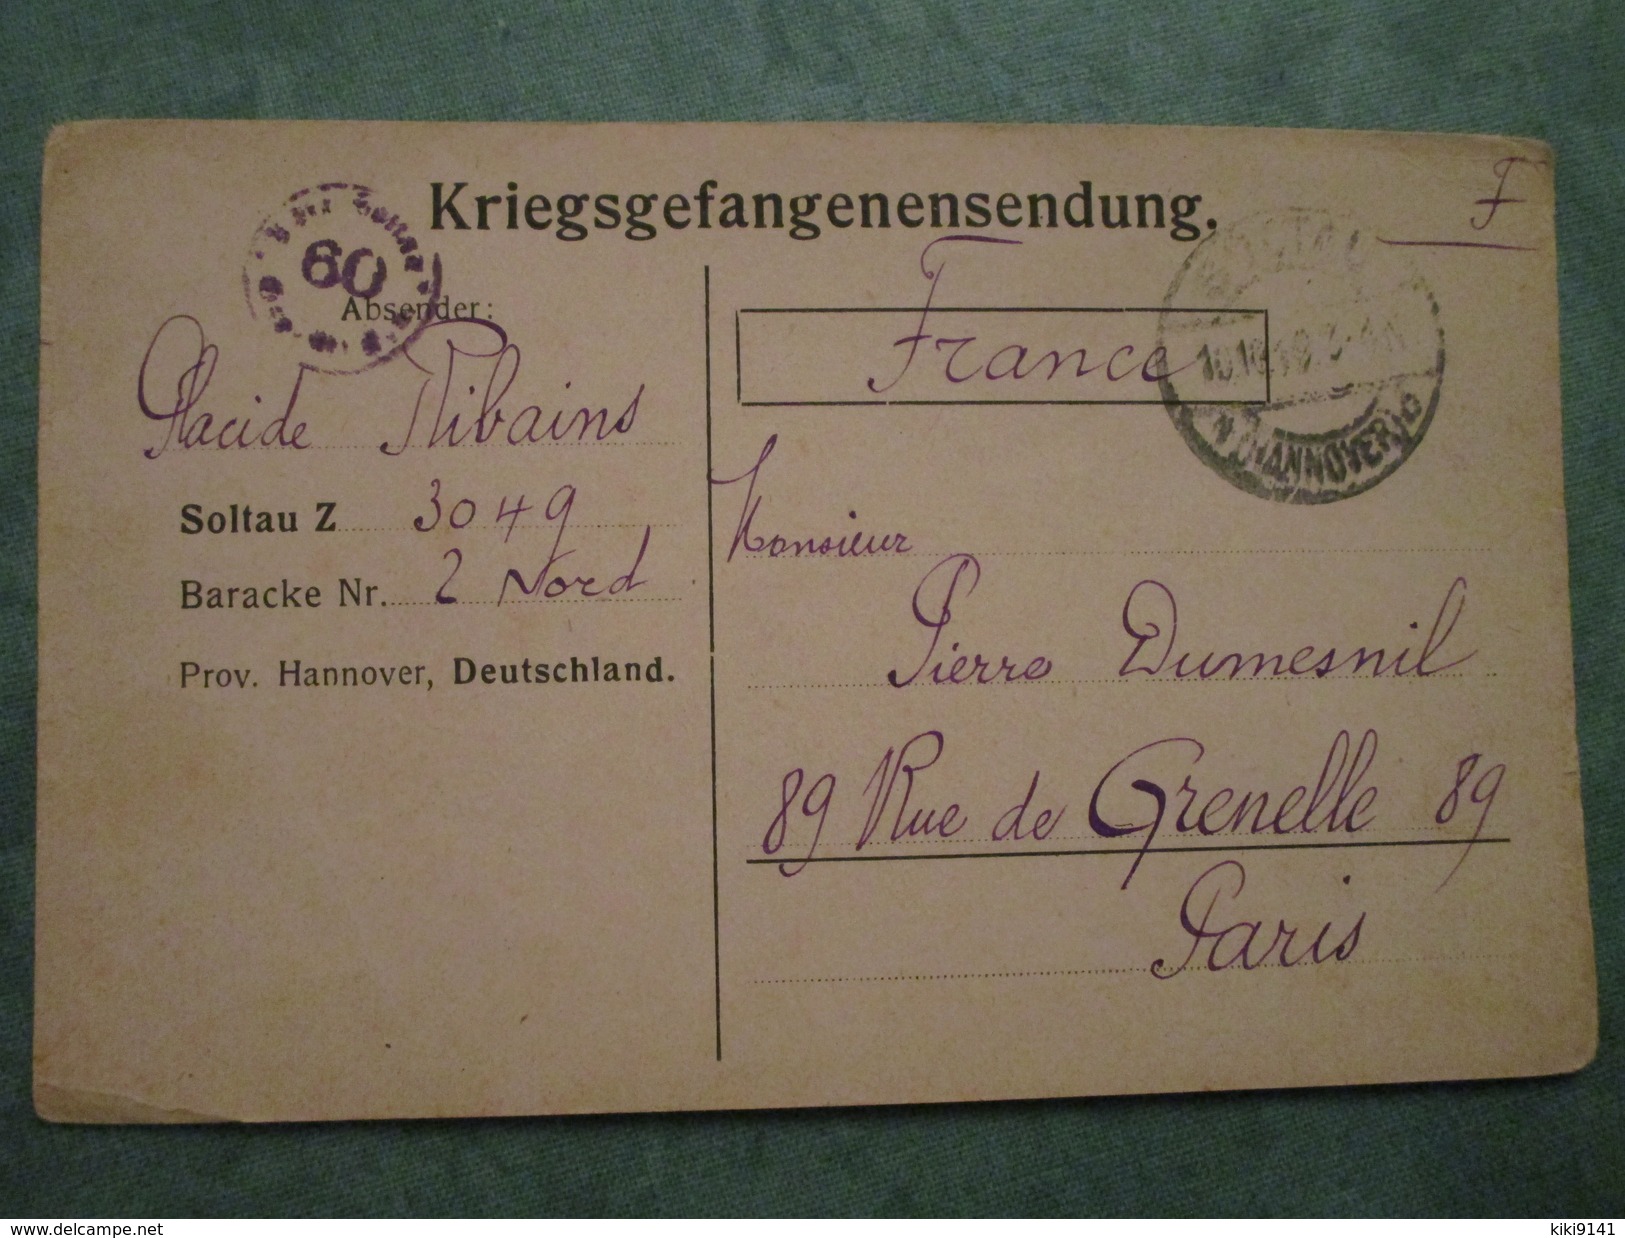 Kriegsgefangenensendung.
F
60
Absender:
Placide Ribains
Soltau Z 3049
Baracke Nr. 2 Nord
Prov. Hannover, Deutschland.
France
(HANNOVER)
Monsieur
Pierre Dumesnil
89 Rue de Grenelle 89
Paris
www.delcampe.net
kiki9141